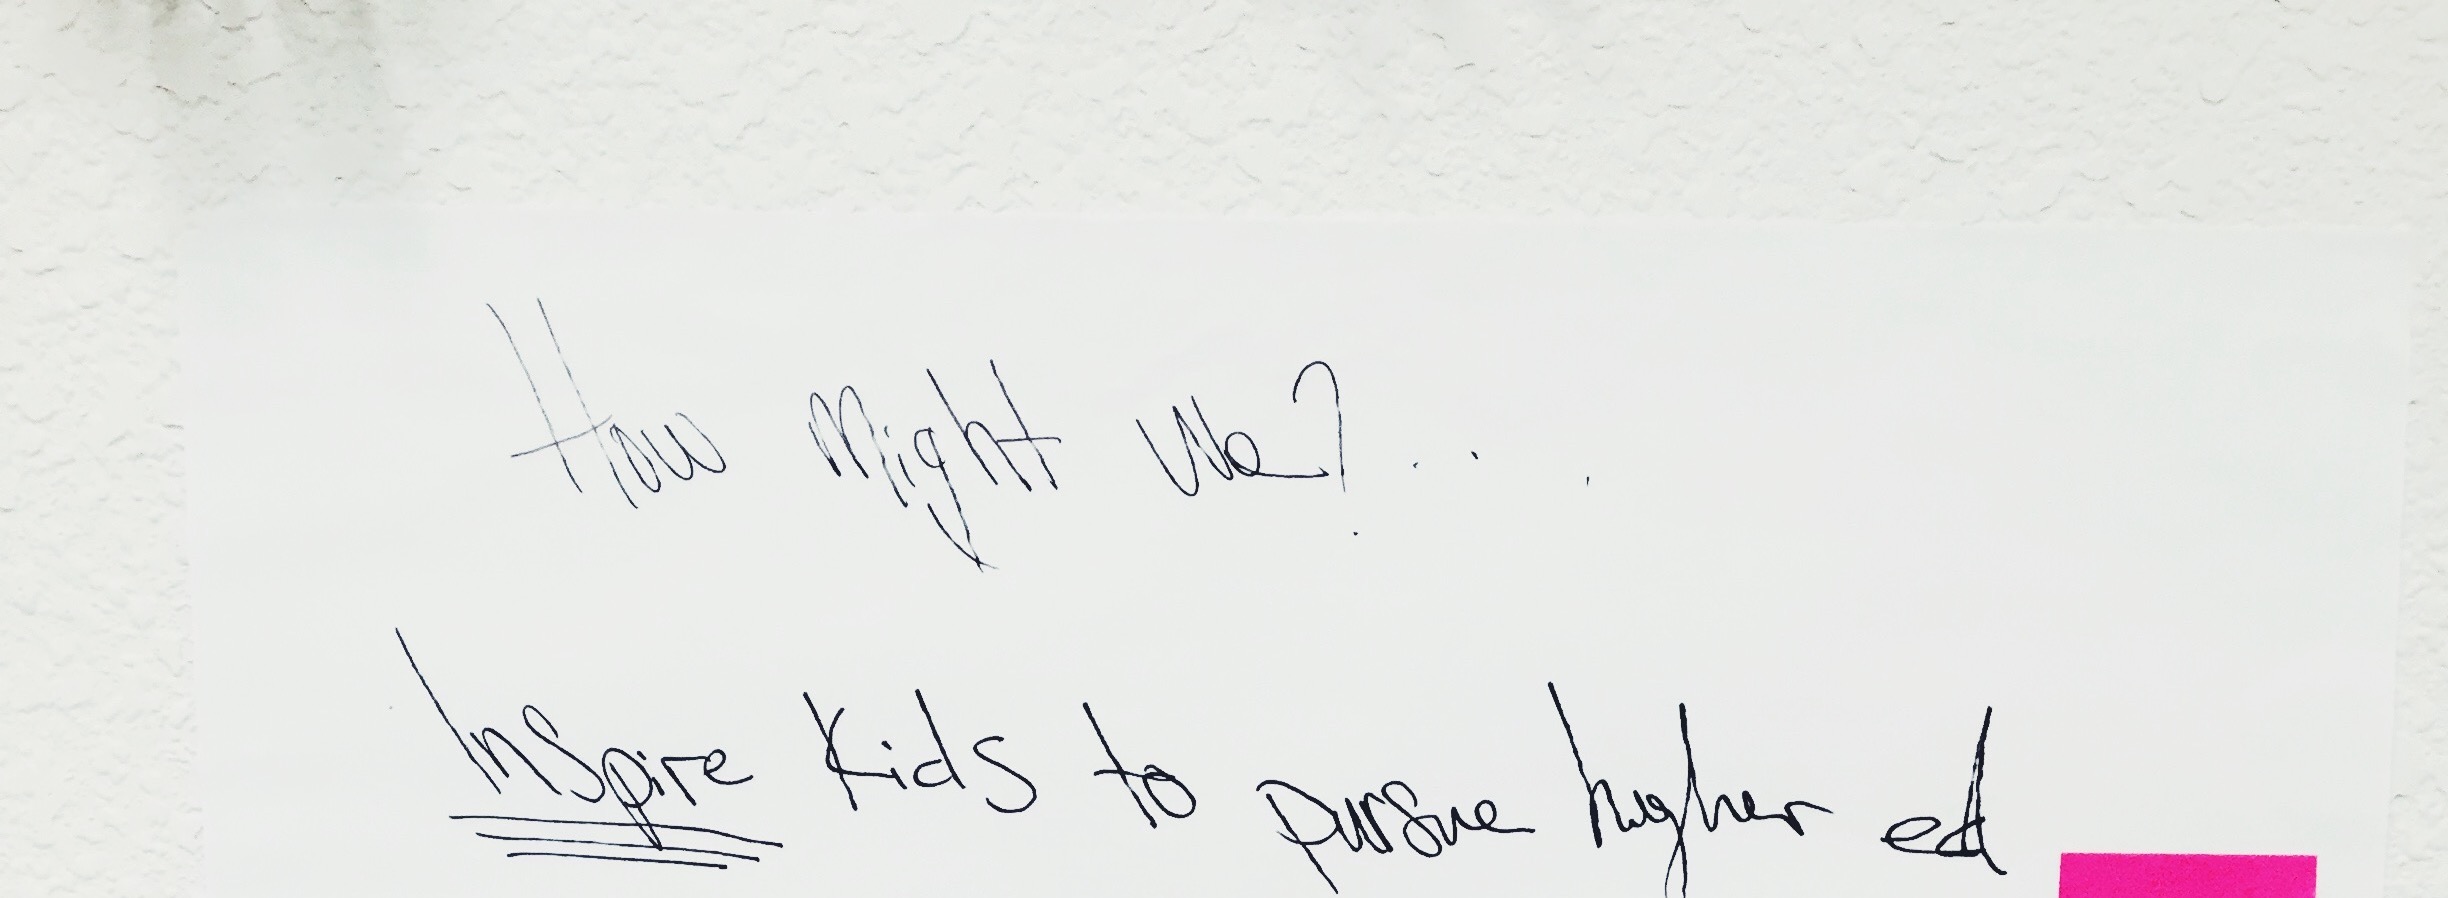 How Might We? ...
Inspire Kids to pursue higher ed